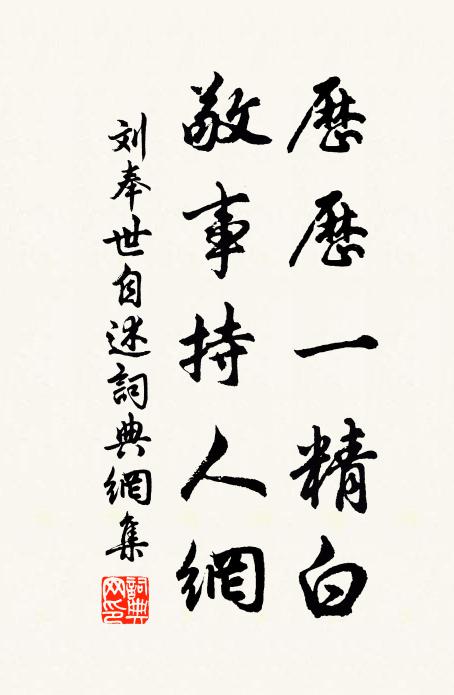 歷歷一精白
敬事持人網
刘奉世自述詞典網集
詞典網印